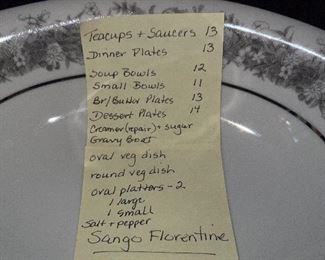 Teacups + Saucers 13
Dinner Plates 13
Soup Bowls 12
Small Bowls 11
Br/Butter Plates 13
Dessert Plates 14
Creamer (repair) + sugar
Gravy Boat
oval veg dish
round veg dish
oval platters - 2
1 large
1 small
Salt + pepper
Sango Florentine